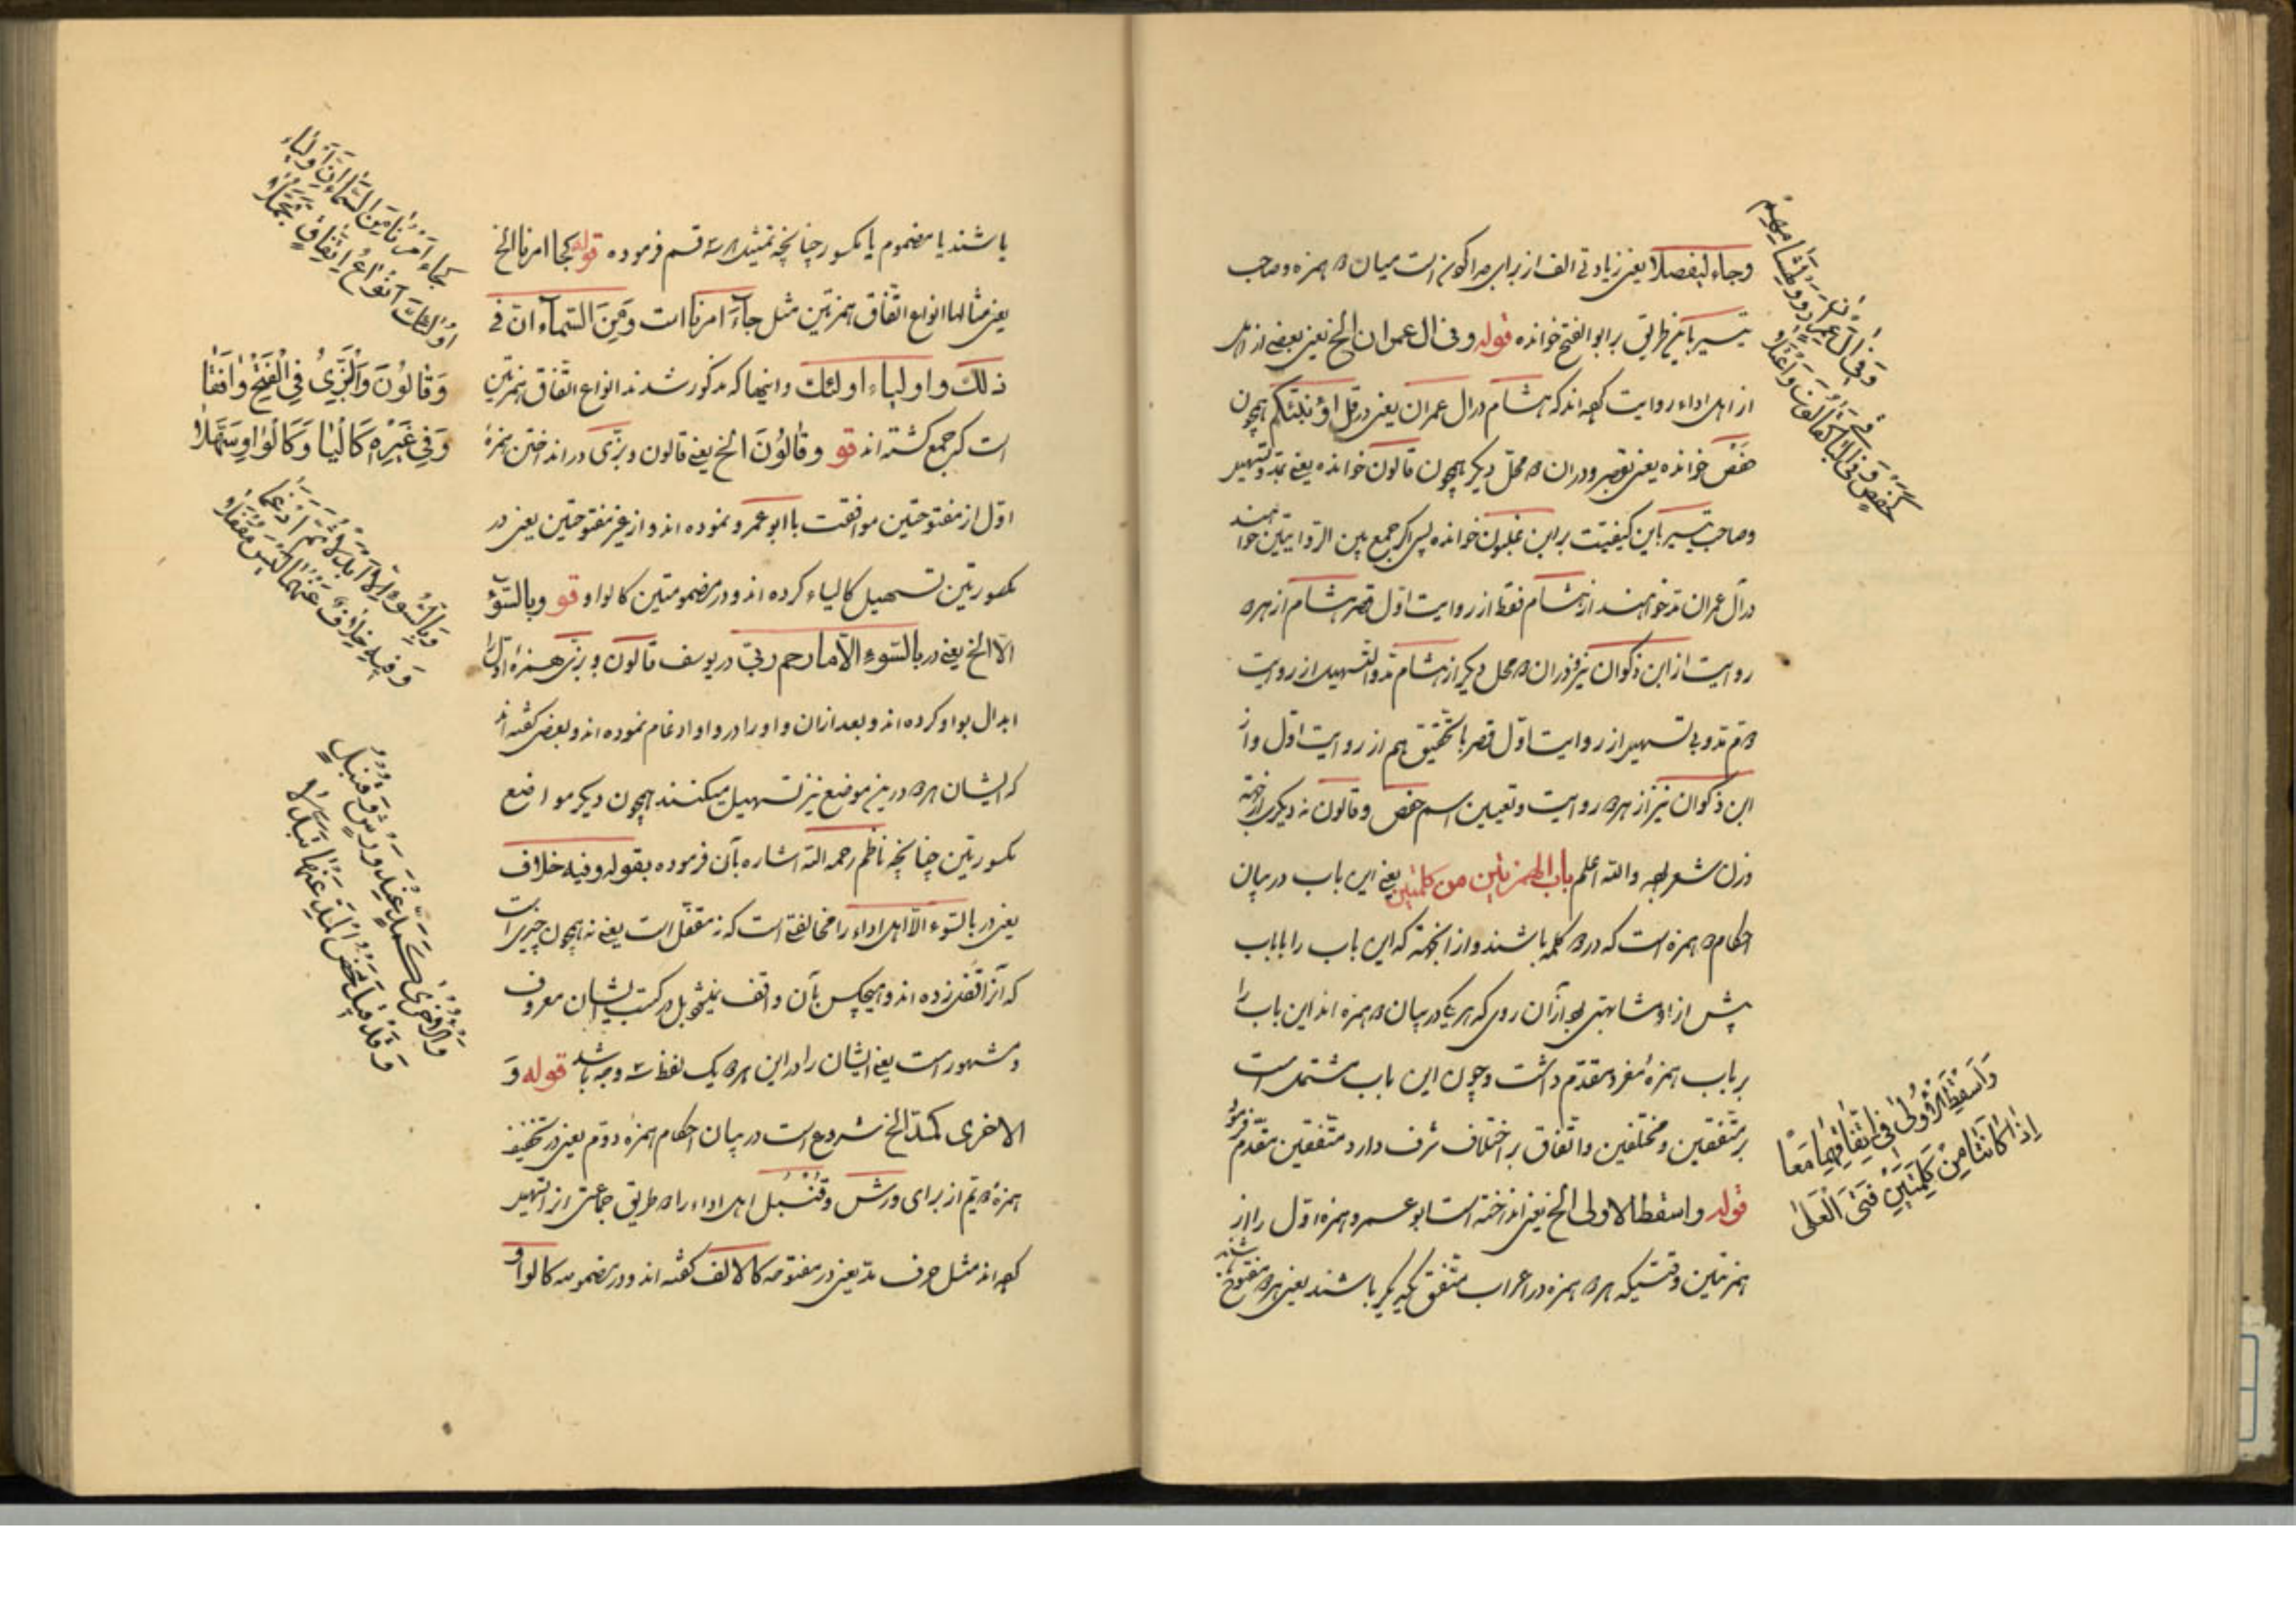 وجاء لیفصلا یعنی زیادتی الف از برای جدا کردن است میان دو همزه و صاحب
تیسیر باین طریق بر ابو الفتح خوانده قوله وفی ال عمران الخ یعنی بعضی از اهل
از اهل اداء روایت کرده اند که هشام در ال عمران یعنی در قل اؤنبئکم همچون
حفص خوانده یعنی بقصر و در ان دو محل دیکر همچون قالون خوانده یعنی بمد و تسهیل
وصاحب تیسیر باین کیفیت بر ابن غلبون خوانده پس اکر جمع بین الروایتین خواهند
در ال عمران مد خوانند از هشام فقط از روایت اول قصر هشام از هر دو
روایت از ابن ذکوان نیز و در ان دو محل دیکر از هشام مد و التسهیل از روایت
دوم مد و بی تسهیل از روایت اول قصر با تحقیق هم از روایت اول و از
ابن ذکوان نیز از هر دو روایت و تعیین اسم حفص و قالون نه دیکری از جهة
وزن شعر بوده والله اعلم باب الهمزتین من کلمتین یعنی این باب در بیان
احکام دو همزه است که در دو کلمه باشند و از انجهة که این باب را با باب
پیش از او مشابهتی بود از آن روی که هر یک در بیان دو همزه اند این باب را
بر باب همزهٔ مفرد مقدم داشت و چون این باب مشتمل است
بر متفقین و مختلفین و اتفاق بر اختلاف شرف دارد متفقین مقدم فرمود
قوله واسقط الاولی الخ یعنی انداخته است ابو عمرو همزه اول را از
همزتین وقتیکه هر دو همزه در اعراب متفق یکدیکر باشند یعنی هر دو مفتوح
وَفِی آلِ عِمْرَانَ رَوَوْا لِهِشَامِهِمْ
كَحَفْصٍ وَفِی الْبَاقِی كَقَالُونَ وَاعْتَلَا
وَاَسْقَطَ الْاُولٰی فِی اتِّفَاقِهِمَا مَعًا
اِذَا كَانَتَا مِنْ كِلْمَتَیْنِ فَتَی الْعَلٰی
باشند یا مضموم یا مکسور چنانچه تمثیل هر سه قسم فرموده قوله کجا امرنا الخ
یعنی مثالها انواع اتفاق همزتین مثل جآء امرنا است ومن السمآء ان فی
ذلك و اولیاء اولئك و اینها که مذکور شدند انواع اتفاق همزتین
است که جمع کشته اند قو وقالون الخ یعنی قالون و بزی در انداختن همزهٔ
اول از مفتوحتین موافقت با ابو عمرو نموده اند و از غیر مفتوحتین یعنی در
مکسورتین تسهیل کالیاء کرده اند و در مضمومتین کالواو قو وبالسوء
الا الخ یعنی در بالسوء الا ما رحم ربی در یوسف قالون و بزی همزهٔ اول را
ابدال بواو کرده اند و بعد از ان واو را در واو ادغام نموده اند و بعضی کفته اند
که ایشان هر دو درین موضع نیز تسهیل میکنند همچون دیکر مواضع
مکسورتین چنانچه ناظم رحمه الله اشاره بآن فرموده بقوله وفیه خلاف
یعنی در بالسوء الا اهل اداء را مخالفتی است که نه مقفل است یعنی نه همچون چیزی است
که آنرا قفل زده اند و هیچکس بآن واقف نمیشود بل در کتب ایشان معروف
و مشهور است یعنی ایشان را در این هر دو یک لفظ سه وجه باشد قوله وَ
الاخری کمد الخ شروع است در بیان احکام همزهٔ دوم یعنی در تخفیف
همزهٔ دویم از برای ورش و قنبل اهل اداء را دو طریق جماعتی از تسهیل
کرده اند مثل حرف مد یعنی در مفتوحه کالالف کفته اند و در مضمومه کالواو
كَجَاءَ اَمْرُنَا مِنَ السَّمَاءِ اِنَّ اَوْلِیَاءُ
اُولٰئِكَ اَنْوَاعُ اتِّفَاقٍ تَجَمَّلَا
وَقَالُونُ وَالْبَزِّیُّ فِی الْفَتْحِ وَافَقَا
وَفِی غَیْرِهِ كَالْیَا وَكَالْوَاوِ سَهَّلَا
وَبِالسُّوءِ اِلَّا اَبْدَلَا ثُمَّ اَدْغَمَا
وَفِیهِ خِلَافٌ عَنْهُمَا لَیْسَ مُقْفَلَا
وَالْاُخْرٰی كَمَدٍّ عِنْدَ وَرْشٍ وَقُنْبُلٍ
وَقَدْ قِیلَ مَحْضُ الْمَدِّ عَنْهَا تَبَدَّلَا